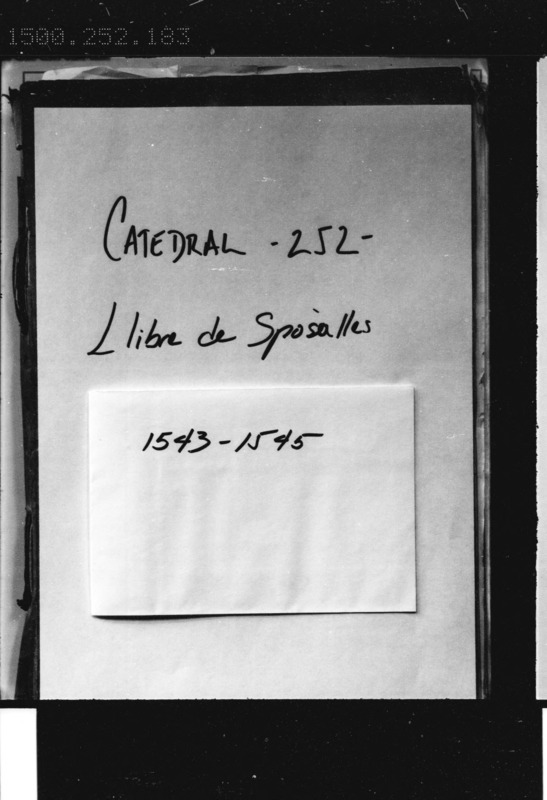 1500.252.183
CATEDRAL -252-
Llibre de Sposàlles
1543-1545